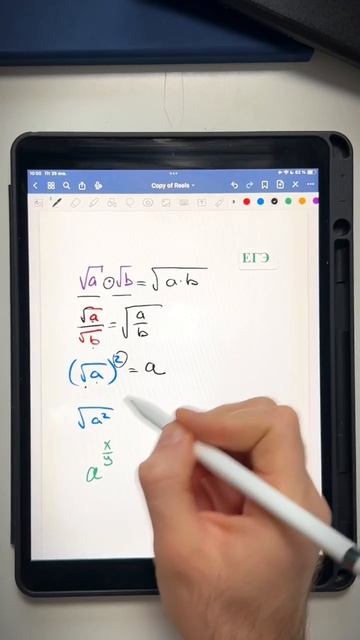 10:50 Пт 26 янв. 62 %
Copy of Reels
ЕГЭ
√a · √b = √a·b
√a/√b = √a/b
(√a)² = a
√a²
a^(x/y)